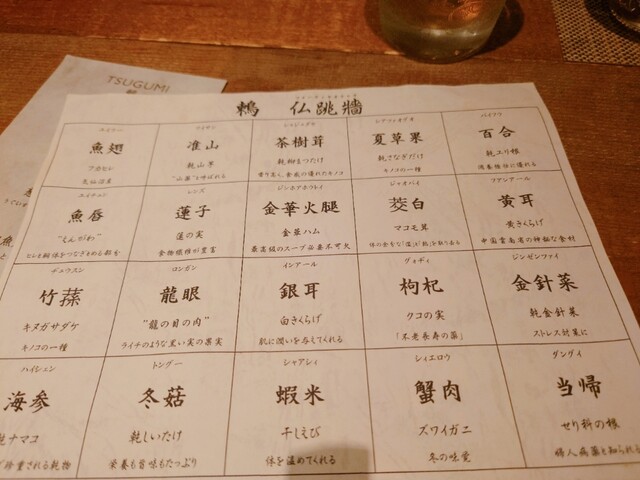 TSUGUMI
鶫 仏跳牆
魚翅
アカセン
気仙沼産
淮山
乾山薬
"山薬"と呼ばれる
茶樹茸
乾柳まつたけ
香り高く、食感の優れたキノコ
夏草果
乾さなぎだけ
キノコの一種
百合
乾ユリ根
滋養強壮に優れる
魚唇
"えんがわ"
ヒレと胴体をつなぎとめる部分
レンズ
蓮子
蓮の実
食物繊維が豊富
ジンホアホウトイ
金華火腿
金華ハム
最高級のスープ必要不可欠
ジャオバイ
茭白
マコモ茸
ワアンアール
黄耳
黄きくらげ
中国雲南省の神秘な食材
チュウスン
竹蓀
キヌガサダケ
キノコの一種
ロンガン
龍眼
"龍の目の肉"
ライチのような黒い実の果実
インアール
銀耳
白きくらげ
肌に潤いを与えてくれる
グォヂィ
枸杞
クコの実
「不老長寿の薬」
ジンゼンツァイ
金針菜
乾金針菜
ストレス対策に
ハイシェン
海参
乾ナマコ
珍重される乾物
トングー
冬菇
乾しいたけ
栄養も旨味もたっぷり
シャアシィ
蝦米
干しえび
体を温めてくれる
シィエロウ
蟹肉
ズワイガニ
冬の味覚
ダングイ
当帰
せり科の根
婦人病薬と知られる